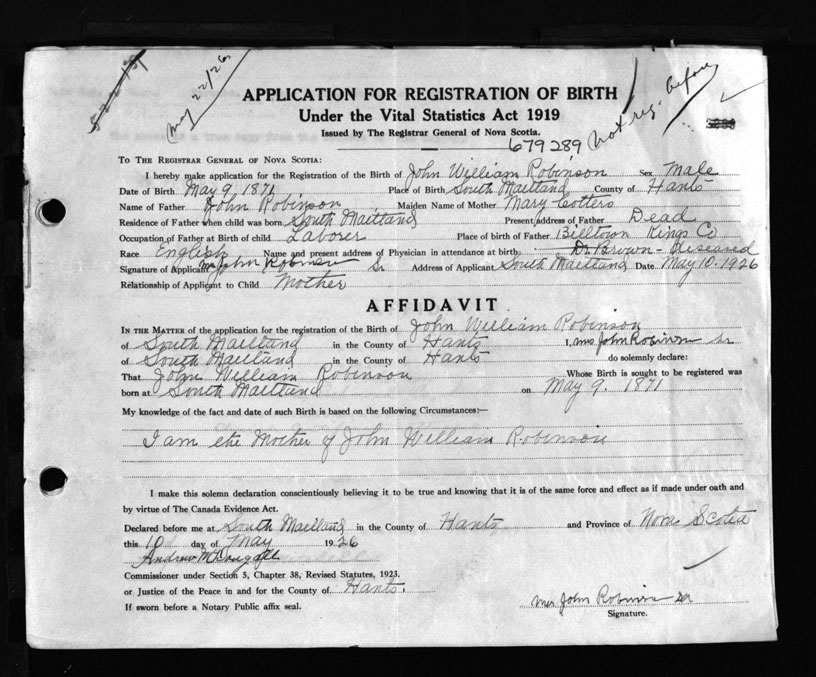 May 22/26
Not reg. before
APPLICATION FOR REGISTRATION OF BIRTH
Under the Vital Statistics Act 1919
Issued by The Registrar General of Nova Scotia.
679289
To The Registrar General of Nova Scotia:
I hereby make application for the Registration of the Birth of John William Robinson Sex Male
Date of Birth May 9, 1871 Place of Birth South Maitland County of Hants
Name of Father John Robinson Maiden Name of Mother Mary Cotters
Residence of Father when child was born South Maitland Present address of Father Dead
Occupation of Father at Birth of child Laborer Place of birth of Father Billtown Kings Co
Race English Name and present address of Physician in attendance at birth Dr Brown - Deseased
Signature of Applicant Mrs John Robinson Sr Address of Applicant South Maitland Date May 10. 1926
Relationship of Applicant to Child Mother
AFFIDAVIT
In the Matter of the application for the registration of the Birth of John William Robinson
of South Maitland in the County of Hants I, Mrs John Robinson Sr
of South Maitland in the County of Hants do solemnly declare:
That John William Robinson Whose Birth is sought to be registered was
born at South Maitland on May 9. 1871
My knowledge of the fact and date of such Birth is based on the following Circumstances:—
I am the Mother of John William Robinson
I make this solemn declaration conscientiously believing it to be true and knowing that it is of the same force and effect as if made under oath and
by virtue of The Canada Evidence Act.
Declared before me at South Maitland in the County of Hants and Province of Nova Scotia
this 10 day of May 1926
Andrew McDougall
Commissioner under Section 5, Chapter 38, Revised Statutes, 1923.
or Justice of the Peace in and for the County of Hants.
If sworn before a Notary Public affix seal.
Mrs John Robinson Sr
Signature.